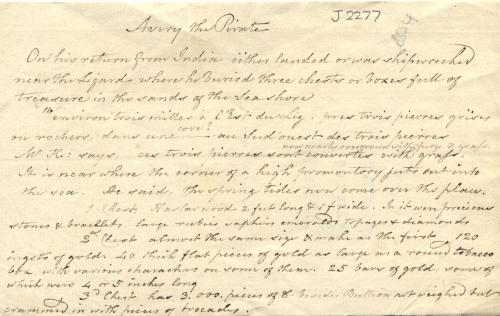 J2277
Avery the Pirate
On his return from India either landed or was shipwrecked
near the Lizard where he buried three chests or boxes full of
treasure in the sands of the Sea shore
environ trois milles à l'Est du Lizd, pres trois pierres grises
ou rochers, dans une cove: au Sud ouest des trois pierres
now nearly overgrown with grass.
Mr. K: says, ces trois pierres sont couvertes with grass,
It is near where the corner of a high promontory juts out into
the sea. He said, the spring tides now come over the place.
1 Chest. 2 feet long & 1 f wide. In it were precious
stones & bracelets. large rubies saphirs emeralds topazes & diamonds
2d Chest almost the same size & make as the first 120
ingots of gold. 40 thick flat pieces of gold as large as a round tobacco
box with various characters on some of them. 25 bars of gold, some of
which were 4 or 5 inches long
3d Chest has 3.000. pieces of 8. beside Bullion not weighed but
crammed in with pieces of brocades.